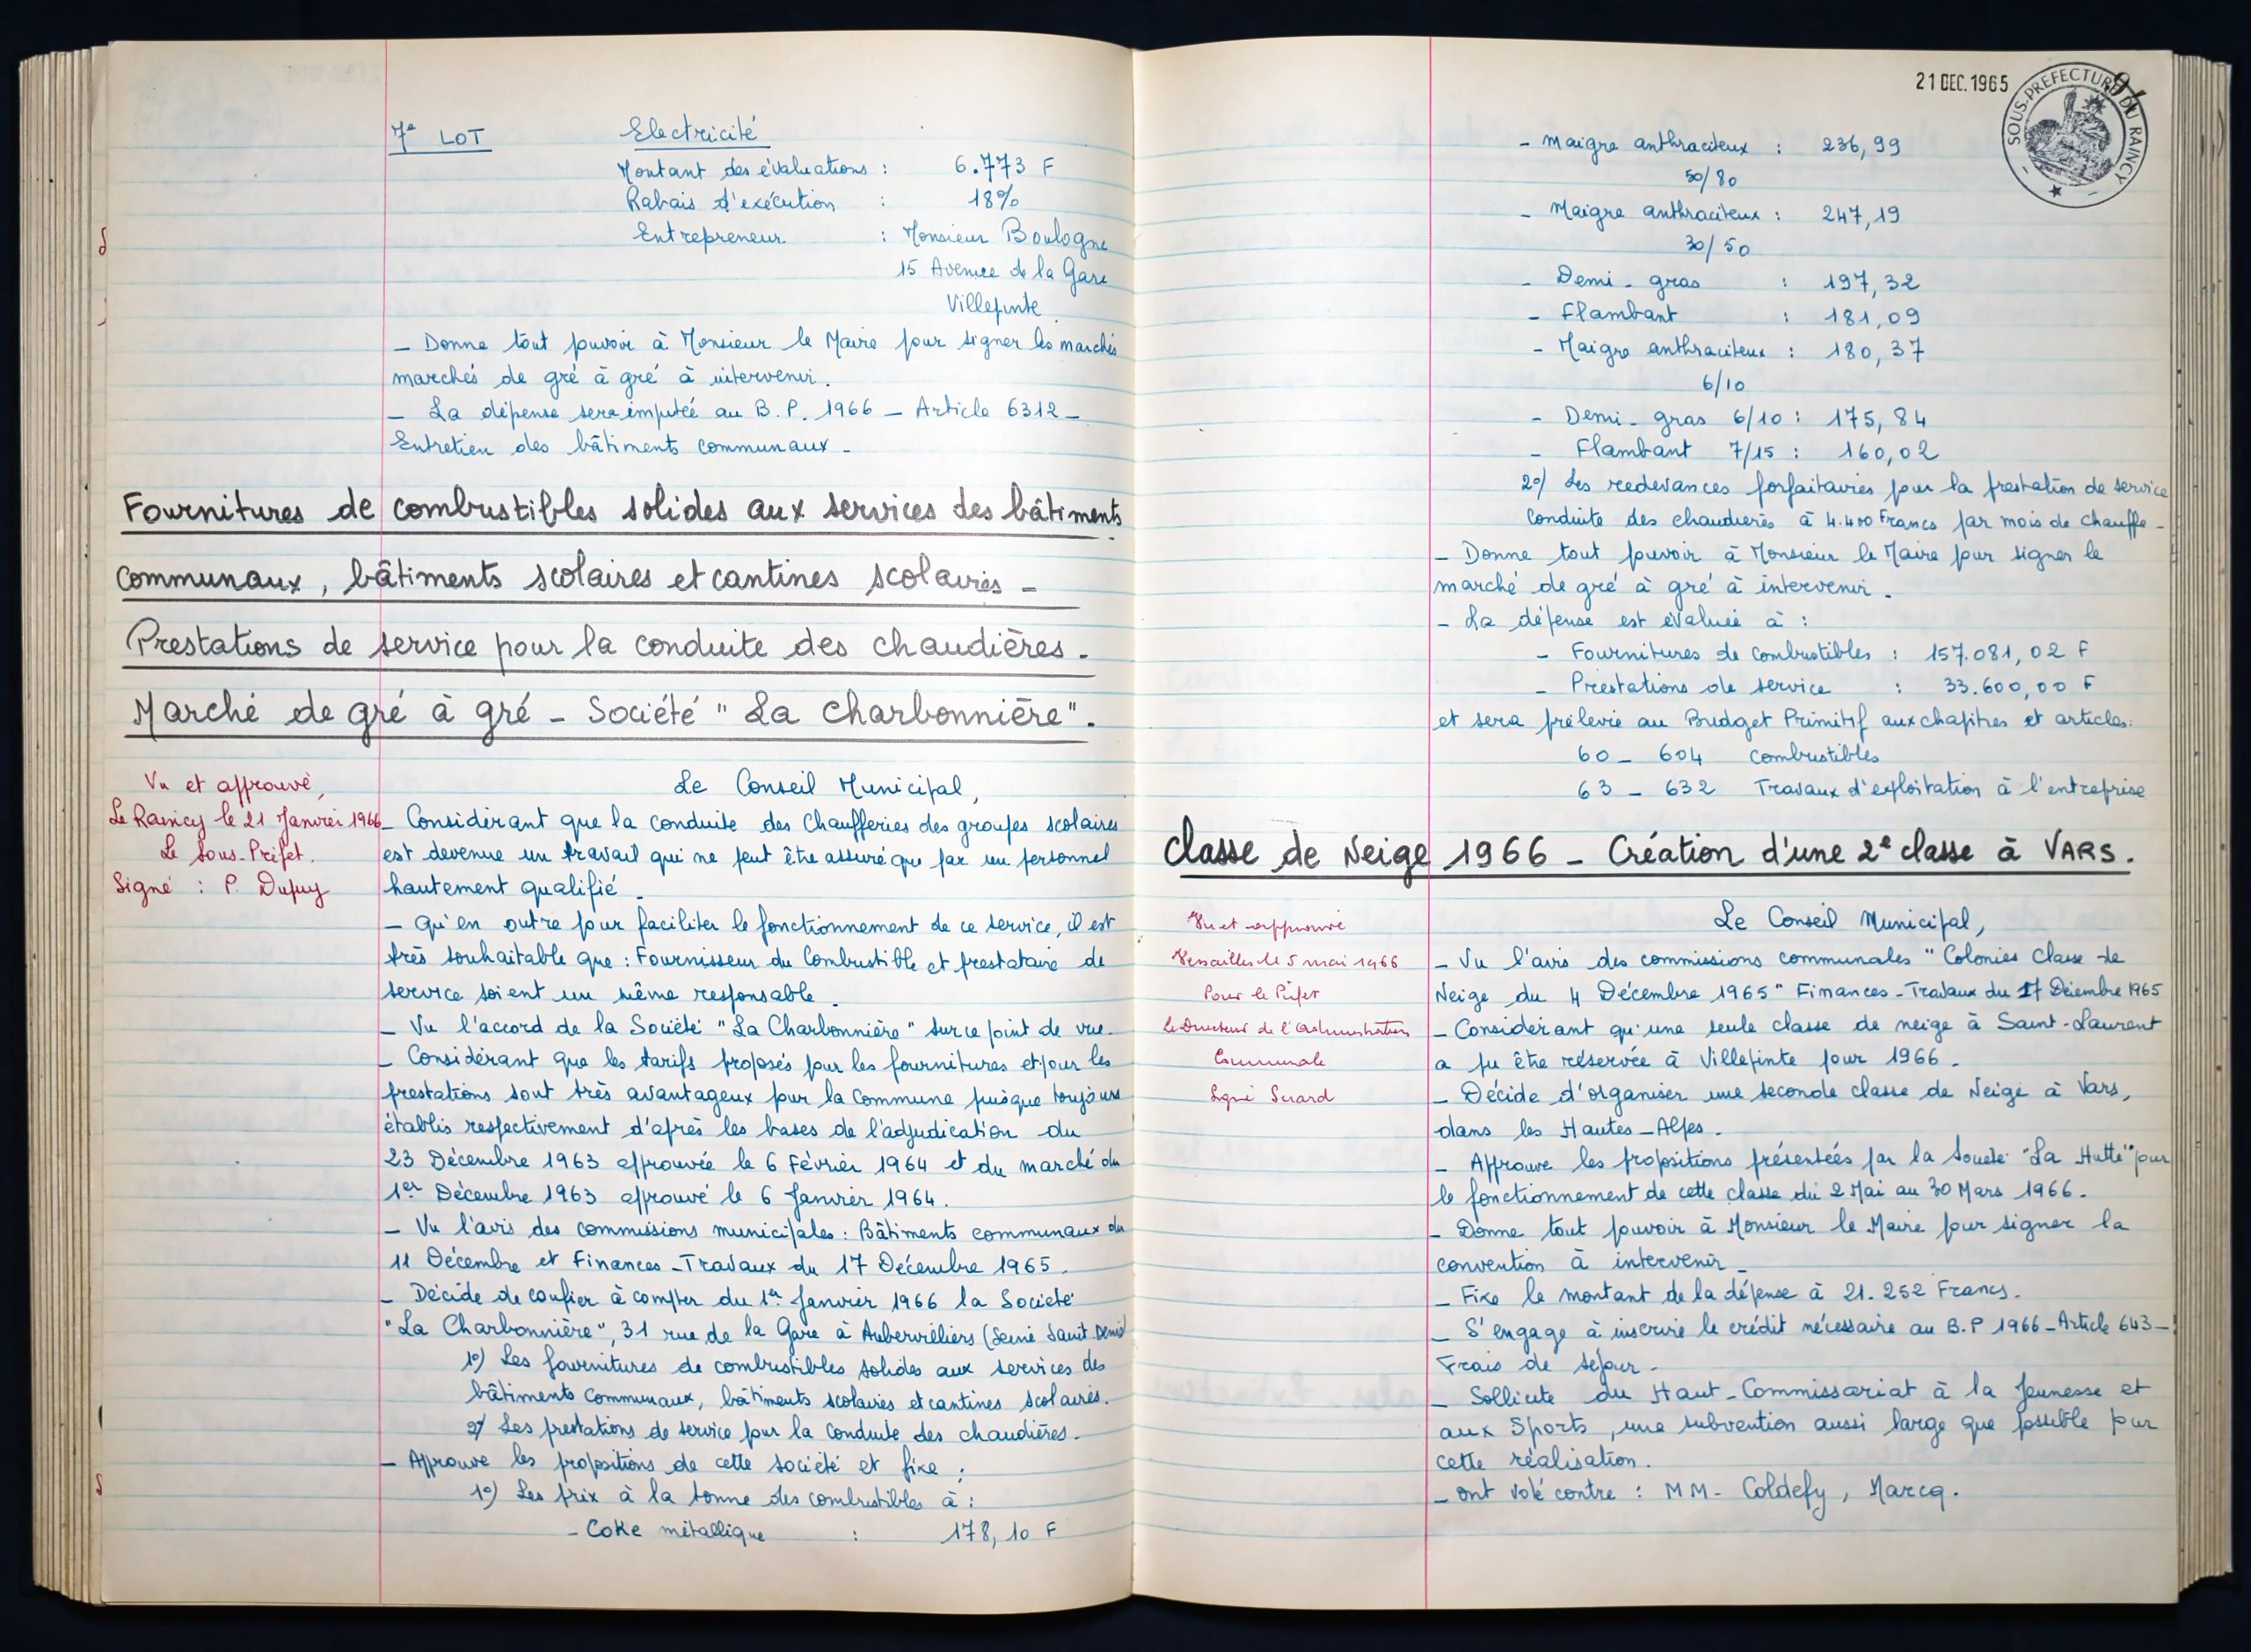 7e LOT Electricité
Montant des évaluations : 6.773 F
Rabais d'exécution : 18%
Entrepreneur : Monsieur Boulogne
15 Avenue de la Gare
Villepinte
- Donne tout pouvoir à Monsieur le Maire pour signer les marchés
marchés de gré à gré à intervenir.
- La dépense sera imputée au B.P. 1966 - Article 6312 -
Entretien des bâtiments communaux -
Fournitures de combustibles solides aux services des bâtiments
communaux, bâtiments scolaires et cantines scolaires -
Prestations de service pour la conduite des chaudières.
Marché de gré à gré - Société "La Charbonnière".
Vu et approuvé,
Le Raincy le 21 Janvier 1966
Le Sous-Préfet.
Signé : P. Dupuy
Le Conseil Municipal,
- Considérant que la conduite des Chaufferies des groupes scolaires
est devenue un travail qui ne peut être assuré que par un personnel
hautement qualifié.
- Qu'en outre pour faciliter le fonctionnement de ce service, il est
très souhaitable que : Fournisseur du Combustible et prestataire de
service soient un même responsable.
- Vu l'accord de la Société "La Charbonnière" sur ce point de vue.
- Considérant que les tarifs proposés pour les fournitures et pour les
prestations sont très avantageux pour la Commune puisque toujours
établis respectivement d'après les bases de l'adjudication du
23 Décembre 1963 approuvée le 6 Février 1964 et du marché du
1er Décembre 1963 approuvé le 6 Janvier 1964.
- Vu l'avis des commissions municipales : Bâtiments communaux du
11 Décembre et Finances - Travaux du 17 Décembre 1965.
- Décide de confier à compter du 1er Janvier 1966 la Société
"La Charbonnière", 31 rue de la Gare à Aubervilliers (Seine Saint-Denis)
1°) Les fournitures de combustibles solides aux services des
bâtiments communaux, bâtiments scolaires et cantines scolaires.
2°) Les prestations de service pour la conduite des chaudières.
- Approuve les propositions de cette société et fixe :
1°) Les prix à la tonne des combustibles à :
- Coke métallique : 178,10 F
21 DEC. 1965
SOUS-PREFECTURE DU RAINCY
- Maigre anthraciteux : 236,99
50/80
- Maigre anthraciteux : 247,19
30/50
- Demi-gras : 197,32
- Flambant : 181,09
- Maigre anthraciteux : 180,37
6/10
- Demi-gras 6/10 : 175,84
- Flambant 7/15 : 160,02
2°) Les redevances forfaitaires pour la prestation de service
conduite des chaudières à 4.400 Francs par mois de chauffe -
- Donne tout pouvoir à Monsieur le Maire pour signer le
marché de gré à gré à intervenir.
- La dépense est évaluée à :
- Fournitures de combustibles : 157.081,02 F
- Prestations de service : 33.600,00 F
et sera prélevée au Budget Primitif aux chapitres et articles :
60 - 604 combustibles
63 - 632 Travaux d'exploitation à l'entreprise
Classe de Neige 1966 - Création d'une 2e classe à VARS.
Vu et approuvé
Versailles le 5 mai 1966
Pour le Préfet
Le Directeur de l'Administration
Communale
Signé
Le Conseil Municipal,
- Vu l'avis des commissions communales "Colonies Classe de
Neige du 4 Décembre 1965" Finances - Travaux du 17 Décembre 1965
- Considérant qu'une seule classe de neige à Saint-Laurent
a pu être réservée à Villepinte pour 1966.
- Décide d'organiser une seconde classe de Neige à Vars,
dans les Hautes-Alpes.
- Approuve les propositions présentées par la Société "La Hutte" pour
le fonctionnement de cette classe du 2 Mai au 30 Mars 1966.
- Donne tout pouvoir à Monsieur le Maire pour signer la
convention à intervenir -
- Fixe le montant de la dépense à 21.252 Francs.
- S'engage à inscrire le crédit nécessaire au B.P 1966 - Article 643 -
Frais de séjour -
- Sollicite du Haut-Commissariat à la Jeunesse et
aux Sports, une subvention aussi large que possible pour
cette réalisation.
- ont voté contre : MM. Coldefy, Marcq.